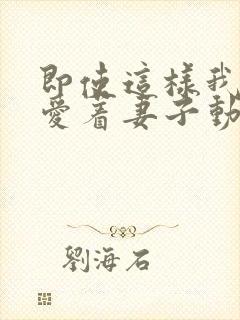 即使這樣我
愛着妻子動
劉海石